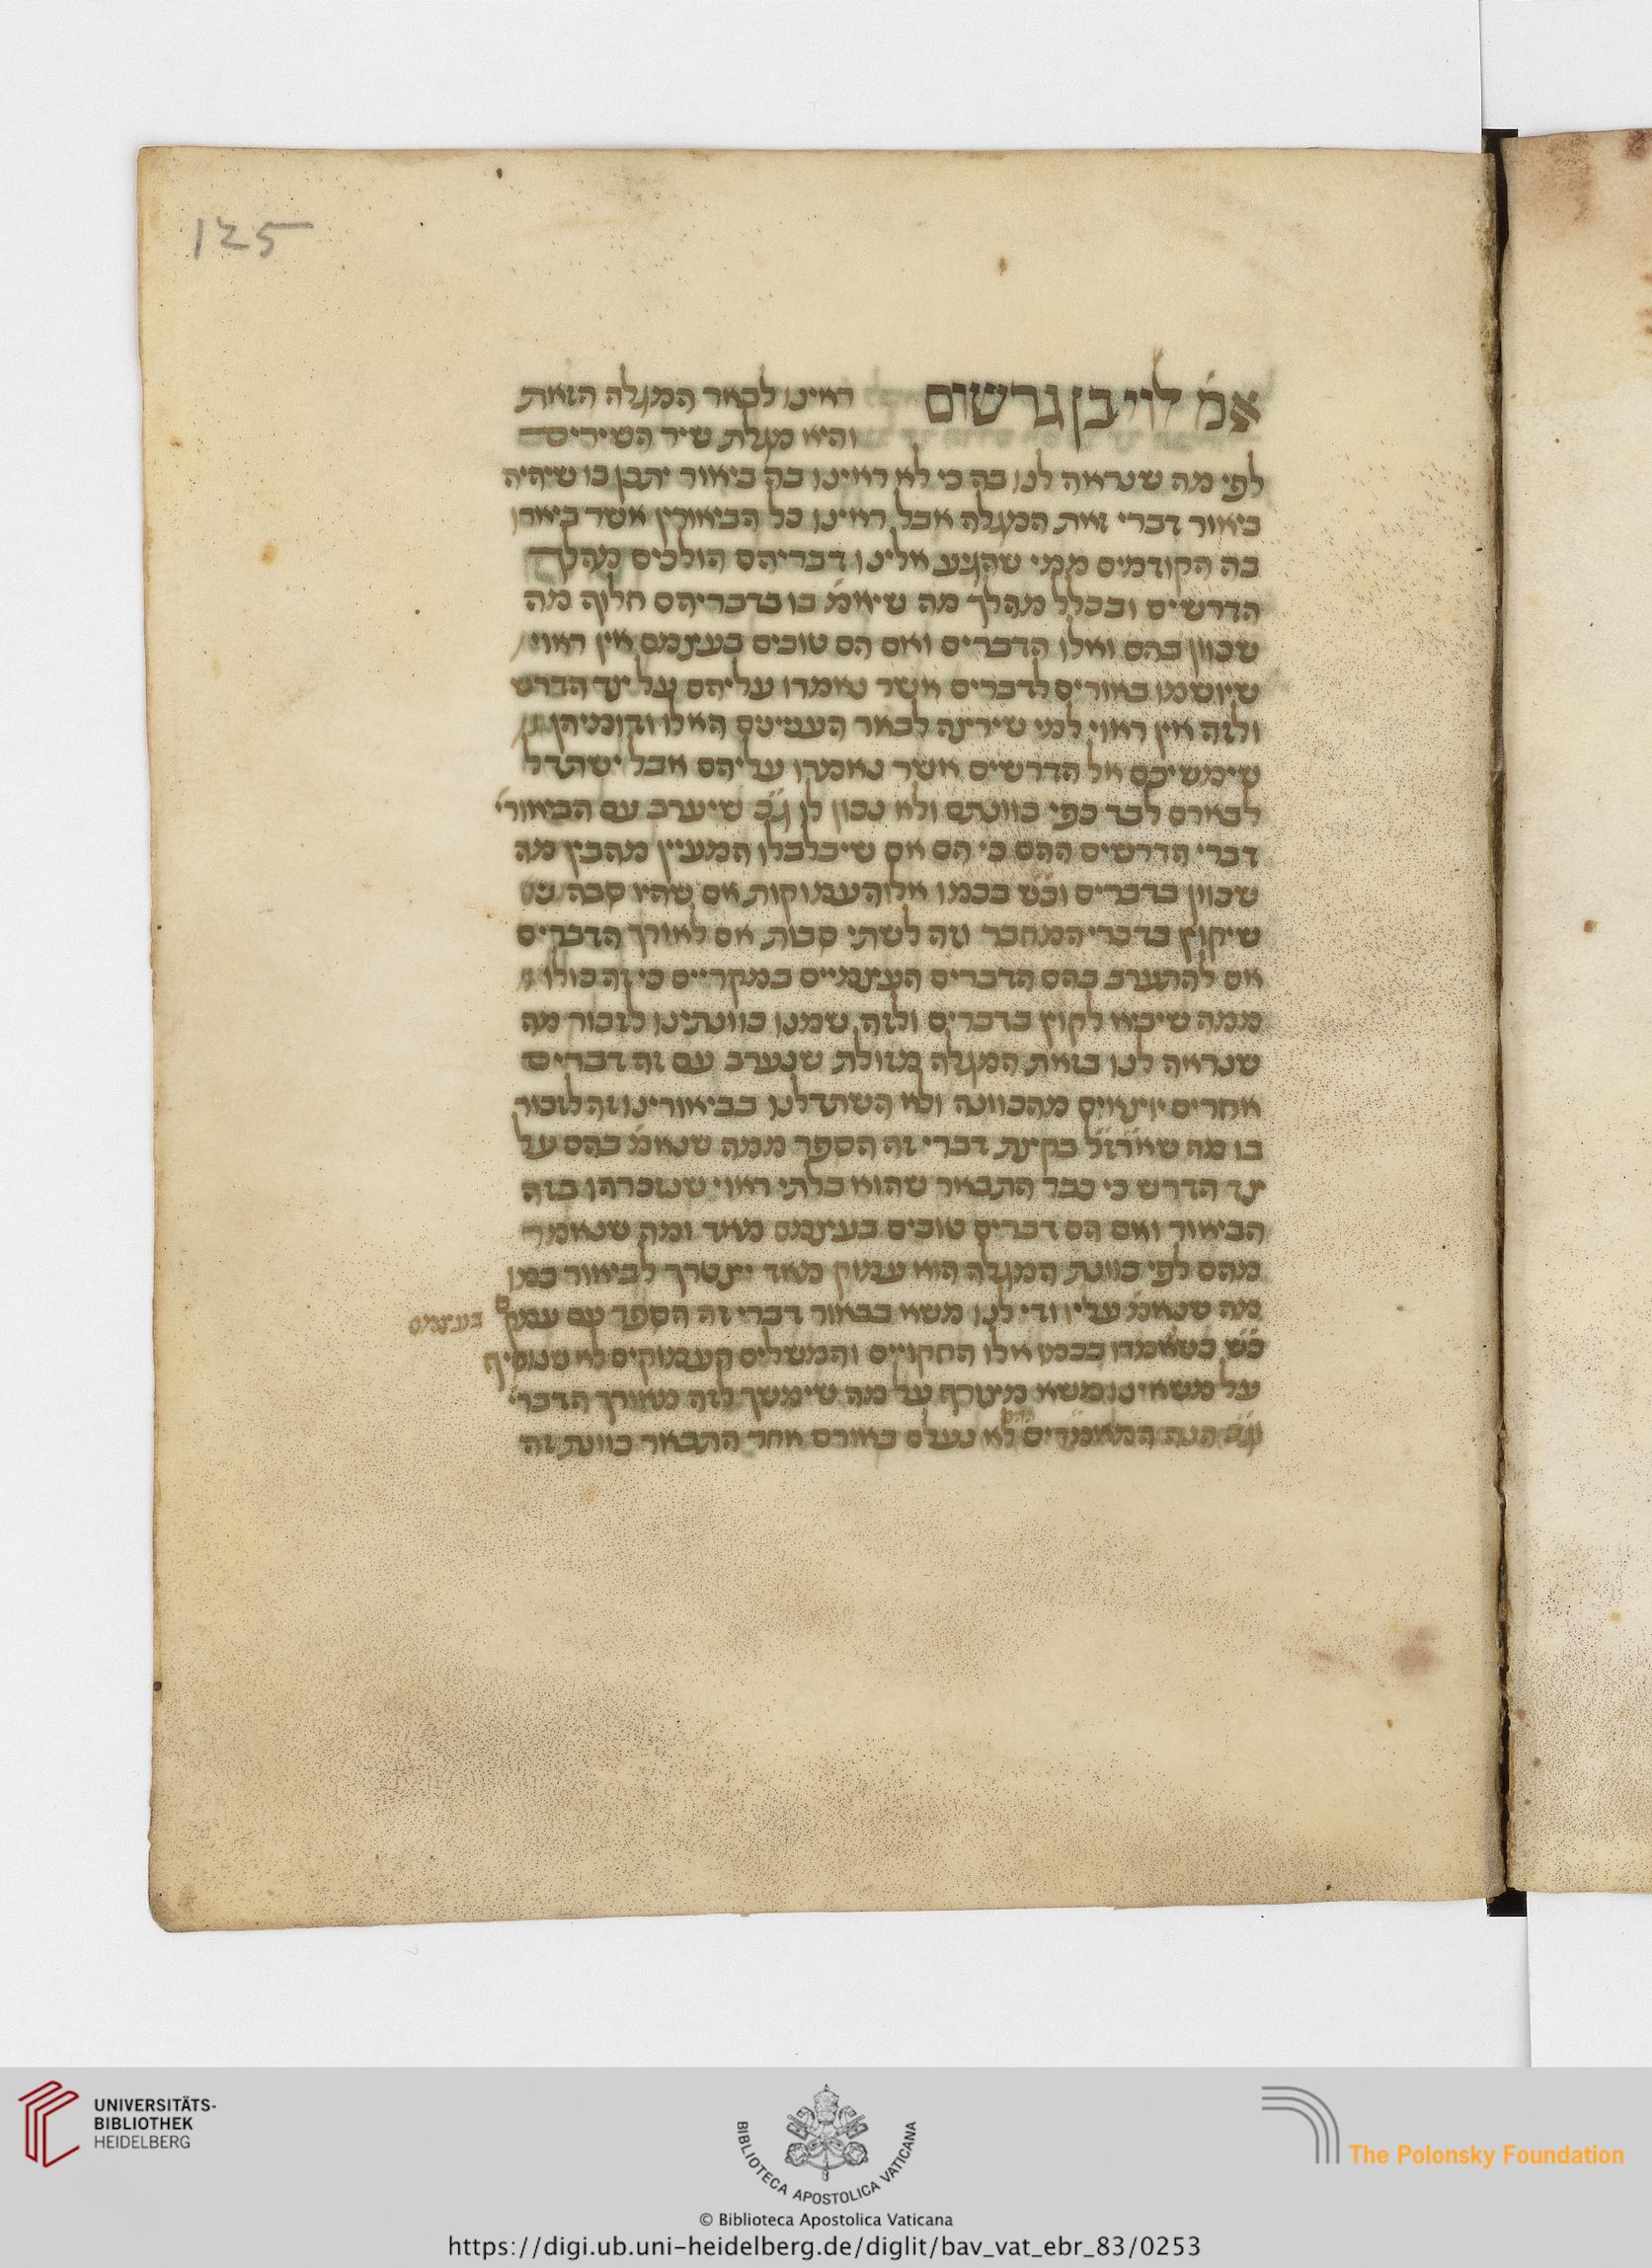 125
אמ׳ לוי בן גרשום ראינו לבאר המגלה הזאת
והיא מגלת שיר השירים
לפי מה שנראה לנו בה כי לא ראינו בה ביאור יתכן בו שיהיה
ביאור דברי זאת המגלה אבל ראינו כל הביאורין אשר ביארו
בה הקודמים ממי שהגיע אלינו דבריהם הולכים מהלך
הדרשים ובכלל מהלך מה שיאמ׳ בו בדבריהם חלוף מה
שכוון בהם ואלו הדברים ואם הם טובים בעצמם אין ראוי
שיושמו באורים לדברים אשר נאמרו עליהם על יצד הדרש
ולזה אין ראוי למי שירצה לבאר הענינים האלו ודומיהן
שימשיכם אל הדרשים אשר נאמרו עליהם אבל ישתדל
לבארם לבד כפי כוונתם ולא נכון לו ג״כ שיערב עם הביאור׳
דברי הדרשים ההם כי הם אם שיבלבלו המעיין מהבין מה
שכוון בדברים וכ״ש בכמו אלו העמוקות אם שהיו סבה
שיקוץ בדברי המחבר וזה לשתי סבות אם לאורך הדברים
אם להתערב בהם הדברים העצמיים במקריים כי זה כולו
ממה שיביא לקוץ בדברים ולזה שמנו כוונתינו לזכור מה
שנראה לנו בזאת המגלה מזולת שנערב עם זה דברים
אחרים יוצאים מהכוונה ולא השתדלנו בביאורינו זה לזכור
בו מה שארז״ל בקצת דברי זה הספר ממה שנאמ׳ בהם על
צד הדרש כי כבר התבאר שהוא בלתי ראוי שנזכרהו בזה
הביאור ואם הם דברים טובים בעצמם מאד ומה שנאמר
מהם לפי כוונת המגלה הוא עמוק מאד יצטרך לביאור כמו
מה שנאמ׳ עליו ודי לנו משא בבאור דברי זה הספר עם עמקם בעצמם
כ״ש כשאמרו בכמו אלו החקויים והמשלים העמוקים לא שנוסיף
על משאינו משא מצורף על מה שימשך לזה מאורך הדבר׳
הנה המאמרים ההם לא נעלם באורם אחר התבאר כוונת זה
UNIVERSITÄTS-
BIBLIOTHEK
HEIDELBERG
BIBLIOTECA APOSTOLICA VATICANA
The Polonsky Foundation
© Biblioteca Apostolica Vaticana
https://digi.ub.uni-heidelberg.de/diglit/bav_vat_ebr_83/0253